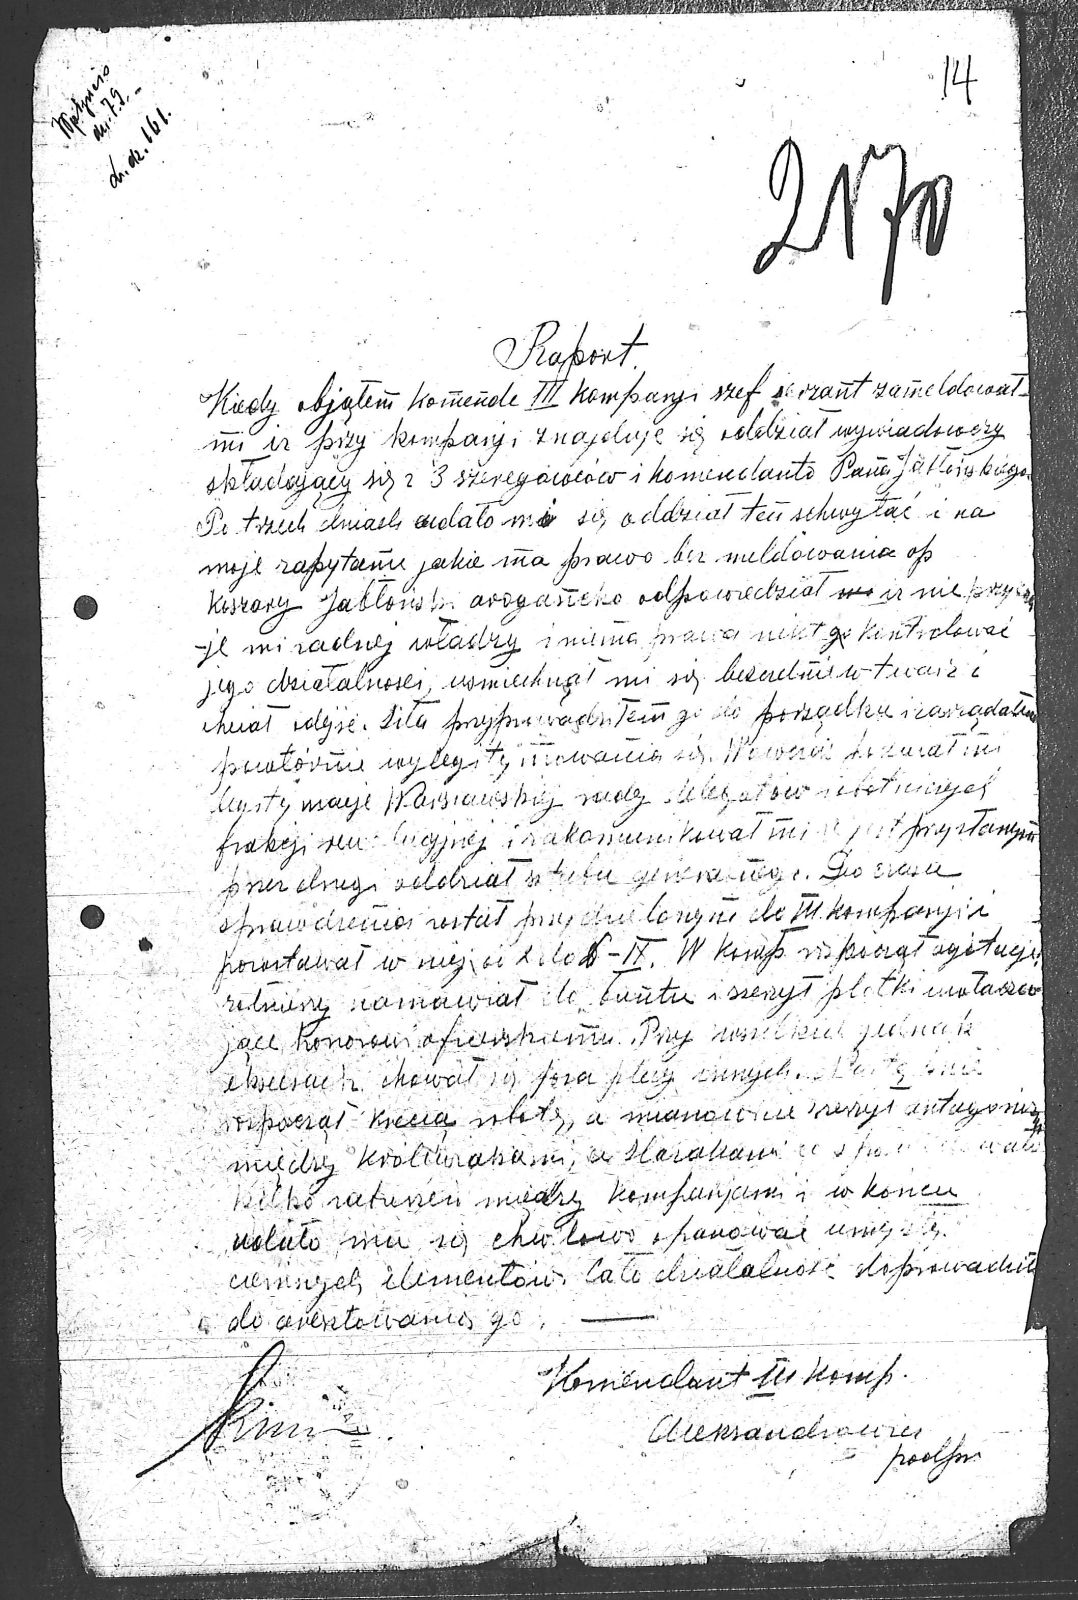 14
Wpłynęło
dn. 7.9.-
L. dz. 161.
2170
Raport.
Kiedy objąłem komendę III kompanji szef serżant zameldował
mi iż przy kompanji znajduje się oddział wywiadowczy
składający się z 3 szeregowców i komendanta Pana Jabłońskiego.
Po trzech dniach udało mi się oddział ten schwytać i na
moje zapytanie jakie ma prawo bez meldowania op
koszary Jabłoński arogancko odpowiedział iż nie przyzna
je mi żadnej władzy i niema prawa nikt go kontrolować
jego działalności, uśmiechnął mi się bezczelnie w twarz i
chciał odejść. Siłą przyprowadziłem go do porządku i zarządałem
powtórnie wylegitymowania się. Wówczas pokazał mi
legitymację Warszawskiej rady delegatów robotniczych
frakcji rewolucyjnej i zakomunikował mi iż jest przysłanym
przez drugi oddział sztabu generalnego. Do czasu
sprawdzenia został przydzielonym do III kompanji i
pozostawał w niej od 2 do 6-IX. W komp. rozpoczął agitację,
żołnierzy namawiał do buntu i szerzył plotki uwłacza
jące honorowi oficerskiemu. Przy wszelkich jednak
ekscesach chował się poza plecy innych.
rozpoczął krecią robotę, a mianowicie szerzył antagonizm
między Królewiakami, a Ślązakami co spowodowało
kilka zatargów między kompanjami i w końcu
udało mu się chwilowo opanować umysły
ciemnych elementów. Cała działalność doprowadziła
do aresztowania go.
Komendant III komp.
Aleksandrowicz
podpor.